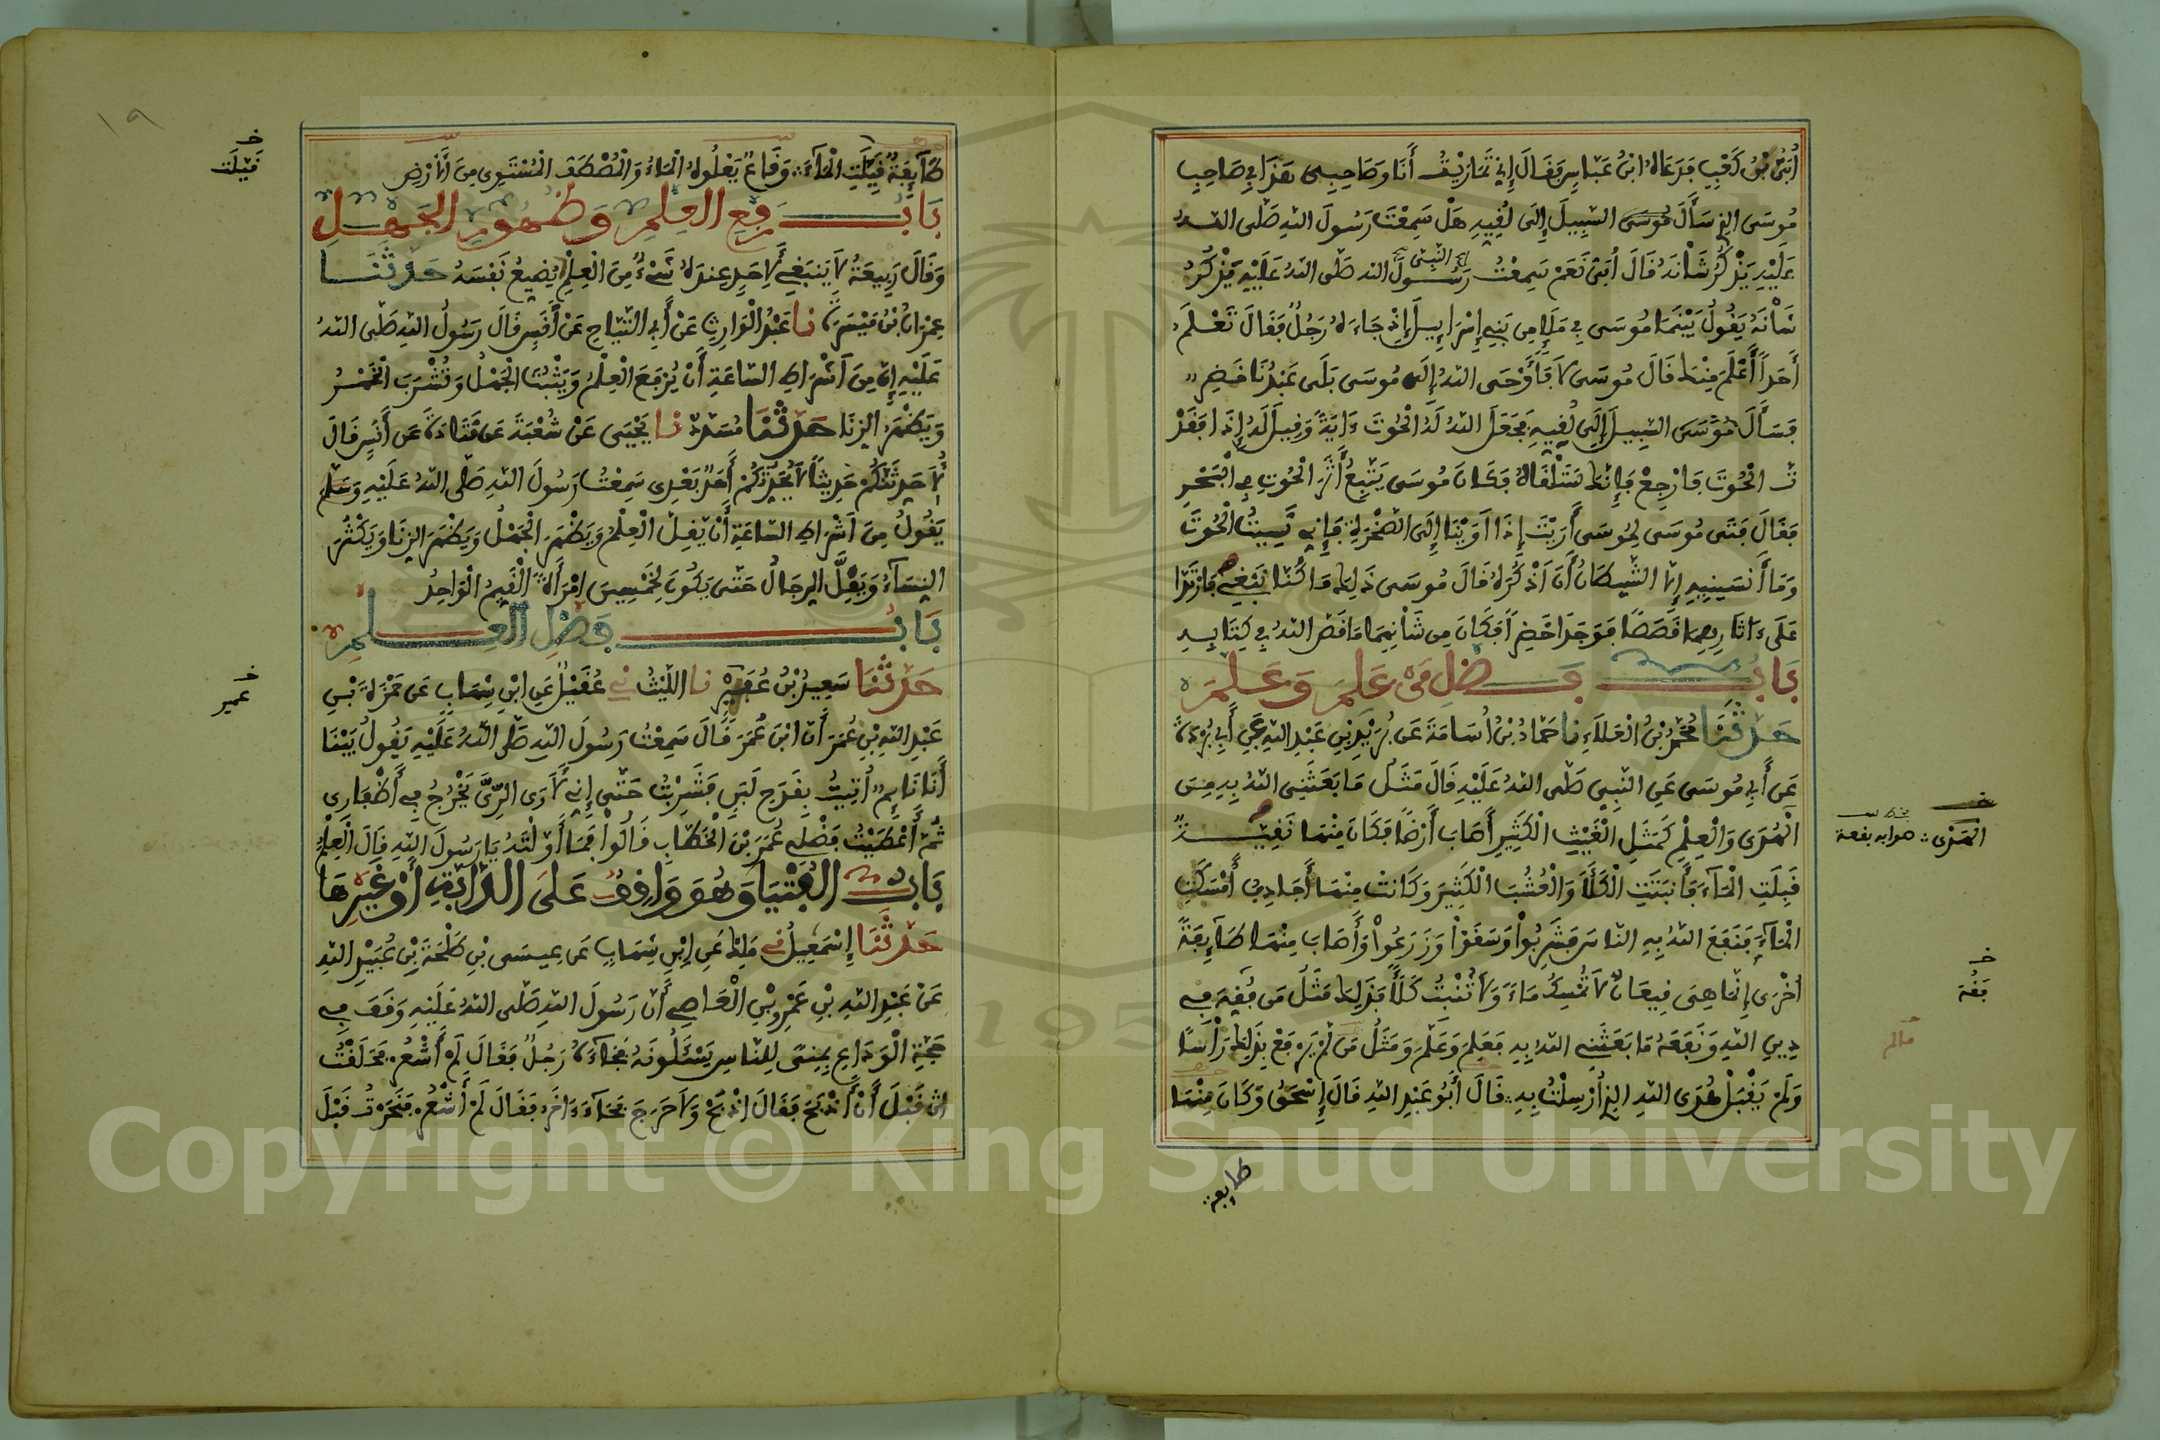 أُبَيُّ بْنُ كَعْبٍ فَدَعَاهُ ابْنُ عَبَّاسٍ فَقَالَ إِنِّي تَمَارَيْتُ أَنَا وَصَاحِبِي هَذَا فِي صَاحِبِ
مُوسَى الذِي سَأَلَ مُوسَى السَّبِيلَ إِلَى لُقِيِّهِ هَلْ سَمِعْتَ رَسُولَ اللهِ صَلَّى اللهُ
عَلَيْهِ يَذْكُرُ شَأْنَهُ قَالَ أُبَيٌّ نَعَمْ سَمِعْتُ رَسُولَ اللهِ صَلَّى اللهُ عَلَيْهِ يَذْكُرُ
النبي
شَأْنَهُ يَقُولُ بَيْنَمَا مُوسَى فِي مَلَإٍ مِن بَنِي إِسْرَائِيلَ إِذْ جَاءَهُ رَجُلٌ فَقَالَ تَعْلَمُ
أَحَداً أَعْلَمَ مِنْكَ قَالَ مُوسَى لَا فَأَوْحَى اللهُ إِلَى مُوسَى بَلَى عَبْدُنَا خَضِرٌ
فَسَأَلَ مُوسَى السَّبِيلَ إِلَى لُقِيِّهِ فَجَعَلَ اللهُ لَهُ الْحُوتَ ءَايَةً وَقِيلَ لَهُ إِذَا فَقَدْ
تَ الْحُوتَ فَارْجِعْ فَإِنَّكَ سَتَلْقَاهُ فَكَانَ مُوسَى يَتَّبِعُ أَثَرَ الْحُوتِ فِي الْبَحْرِ
فَقَالَ فَتَى مُوسَى لِمُوسَى أَرَيْتَ إِذَ اَوَيْنَا إِلَى الصَّخْرَةِ فَإِنِّي نَسِيتُ الْحُوتَ
وَمَا أَنسَانِيهِ إِلَّا الشَّيْطَانُ أَنَ اَذْكُرَهُ قَالَ مُوسَى ذَلِكَ مَا كُنَّا نَبْغِي فَارْتَدَّا
عَلَى ءَاثَارِهِمَا قَصَصًا فَوَجَدَا خَضِراً فَكَانَ مِن شَأْنِهِمَا مَا قَصَّ اللهُ فِي كِتَابِهِ
بَابُ فَضْلِ مَنْ عَلِمَ وَعَلَّمَ
حَدَّثَنَا مُحَمَّدُ بْنُ الْعَلَاءِ نا حَمَّادُ بْنُ أُسَامَةَ عَن بُرَيْدِ بْنِ عَبْدِ اللهِ عَنَ أَبِي بُرْدَةَ
عَنَ أَبِي مُوسَى عَنِ النَّبِيِّ صَلَّى اللهُ عَلَيْهِ قَالَ مَثَلُ مَا بَعَثَنِي اللهُ بِهِ مِنَ
الْهُدَى وَالْعِلْمِ كَمَثَلِ الْغَيْثِ الْكَثِيرِ أَصَابَ أَرْضًا فَكَانَ مِنْهَا نَقِيَّةٌ
قَبِلَتِ الْمَآءَ فَأَنبَتَتِ الْكَلَأَ وَالْعُشُبَ الْكَثِيرَ وَكَانَتْ مِنْهَا أَجَادِبُ أَمْسَكَتِ
الْمَآءَ فَنَفَعَ اللهُ بِهِ النَّاسَ فَشَرِبُوا وَسَقَوْا وَزَرَعُوا وَأَصَابَ مِنْهَا طَآئِفَةً
أُخْرَى إِنَّمَا هِيَ قِيعَانٌ لَا تُمْسِكُ مَاءً وَلَا تُنْبِتُ كَلَأً فَذَلِكَ مَثَلُ مَن فَقُهَ فِي
دِينِ اللهِ وَنَفَعَهُ مَا بَعَثَنِي اللهُ بِهِ فَعَلِمَ وَعَلَّمَ وَمَثَلُ مَن لَمْ يَرْفَعْ بِذَلِكَ رَأْسًا
وَلَمْ يَقْبَلْ هُدَى اللهِ الذِي أُرْسِلْتُ بِهِ قَالَ أَبُو عَبْدِ اللهِ قَالَ إِسْحَقُ وَكَانَ مِنْهَا
طايفة
الهدى
بقعة
فقه
طَآئِفَةٌ قَيَّلَتِ الْمَآءَ وَقَاعٌ يَعْلُوهُ الْمَاءُ وَالْمُصْطَفُّ الْمُسْتَوِي مِنَ الْأَرْضِ
بَابُ رَفْعِ الْعِلْمِ وَظُهُورِ الْجَهْلِ
وَقَالَ رَبِيعَةُ لَا يَنبَغِي لِأَحَدٍ عِندَهُ شَيْءٌ مِنَ الْعِلْمِ يُضِيعُ نَفْسَهُ حَدَّثَنَا
عِمْرَانُ بْنُ مَيْسَرَةَ نا عَبْدُ الْوَارِثِ عَنْ أَبِي التَّيَّاحِ عَنْ أَنَسٍ قَالَ رَسُولُ اللهِ صَلَّى اللهُ
عَلَيْهِ إِنَّ مِنَ اَشْرَاطِ السَّاعَةِ أَنْ يُرْفَعَ الْعِلْمُ وَيَثْبُتَ الْجَهْلُ وَتُشْرَبَ الْخَمْرُ
وَيَظْهَرَ الزِّنَا حَدَّثَنَا مُسَدَّدٌ نا يَحْيَى عَنْ شُعْبَةَ عَن قَتَادَةَ عَنَ أَنَسٍ قَالَ
لَأُحَدِّثَنَّكُمْ حَدِيثاً لَا يُحَدِّثُكُمْ أَحَدٌ بَعْدِي سَمِعْتُ رَسُولَ اللهِ صَلَّى اللهُ عَلَيْهِ وَسَلَّمَ
يَقُولُ مِنَ اَشْرَاطِ السَّاعَةِ أَنْ يَقِلَّ الْعِلْمُ وَيَظْهَرَ الْجَهْلُ وَيَظْهَرَ الزِّنَا وَيَكْثُرَ
النِّسَآءُ وَيَقِلَّ الرِّجَالُ حَتَّى يَكُونَ لِخَمْسِينَ امْرَأَةً الْقَيِّمُ الْوَاحِدُ
بَابُ فَضْلِ الْعِلْمِ
حَدَّثَنَا سَعِيدُ بْنُ عُفَيْرٍ نا اللَّيْثُ ني عُقَيْلٌ عَنِ ابْنِ شِهَابٍ عَن حَمْزَةَ بْنِ
عَبْدِ اللهِ بْنِ عُمَرَ أَنَّ ابْنَ عُمَرَ قَالَ سَمِعْتُ رَسُولَ اللهِ صَلَّى اللهُ عَلَيْهِ يَقُولُ بَيْنَا
أَنَا نَائِمٌ أُتِيتُ بِقَدَحِ لَبَنٍ فَشَرِبْتُ حَتَّى إِنِّي لَأَرَى الرِّيَّ يَخْرُجُ فِي أَظْفَارِي
ثُمَّ أَعْطَيْتُ فَضْلِي عُمَرَ بْنَ الْخَطَّابِ قَالُوا فَمَا أَوَّلْتَهُ يَا رَسُولَ اللهِ قَالَ الْعِلْمُ
بَابُ الْفُتْيَا وَهُوَ وَاقِفٌ عَلَى الدَّابَّةِ أَوْ غَيْرِهَا
حَدَّثَنَا إِسْمَعِيلُ ني مَلِكٌ عَنِ ابْنِ شِهَابٍ عَن عِيسَى بْنِ طَلْحَةَ بْنِ عُبَيْدِ اللهِ
عَنْ عَبْدِ اللهِ بْنِ عَمْرِو بْنِ الْعَاصِي أَنَّ رَسُولَ اللهِ صَلَّى اللهُ عَلَيْهِ وَقَفَ فِي
حَجَّةِ الْوَدَاعِ بِمِنًى لِلنَّاسِ يَسْئَلُونَهُ فَجَآءَهُ رَجُلٌ فَقَالَ لَمْ أَشْعُرْ فَحَلَقْتُ
قَبْلَ أَنْ أَذْبَحَ فَقَالَ اذْبَحْ وَلَا حَرَجَ فَجَآءَ ءَاخَرُ فَقَالَ لَمْ أَشْعُرْ فَنَحَرْتُ قَبْلَ
قبلت
عمير
١٩
Copyright © King Saud University
195